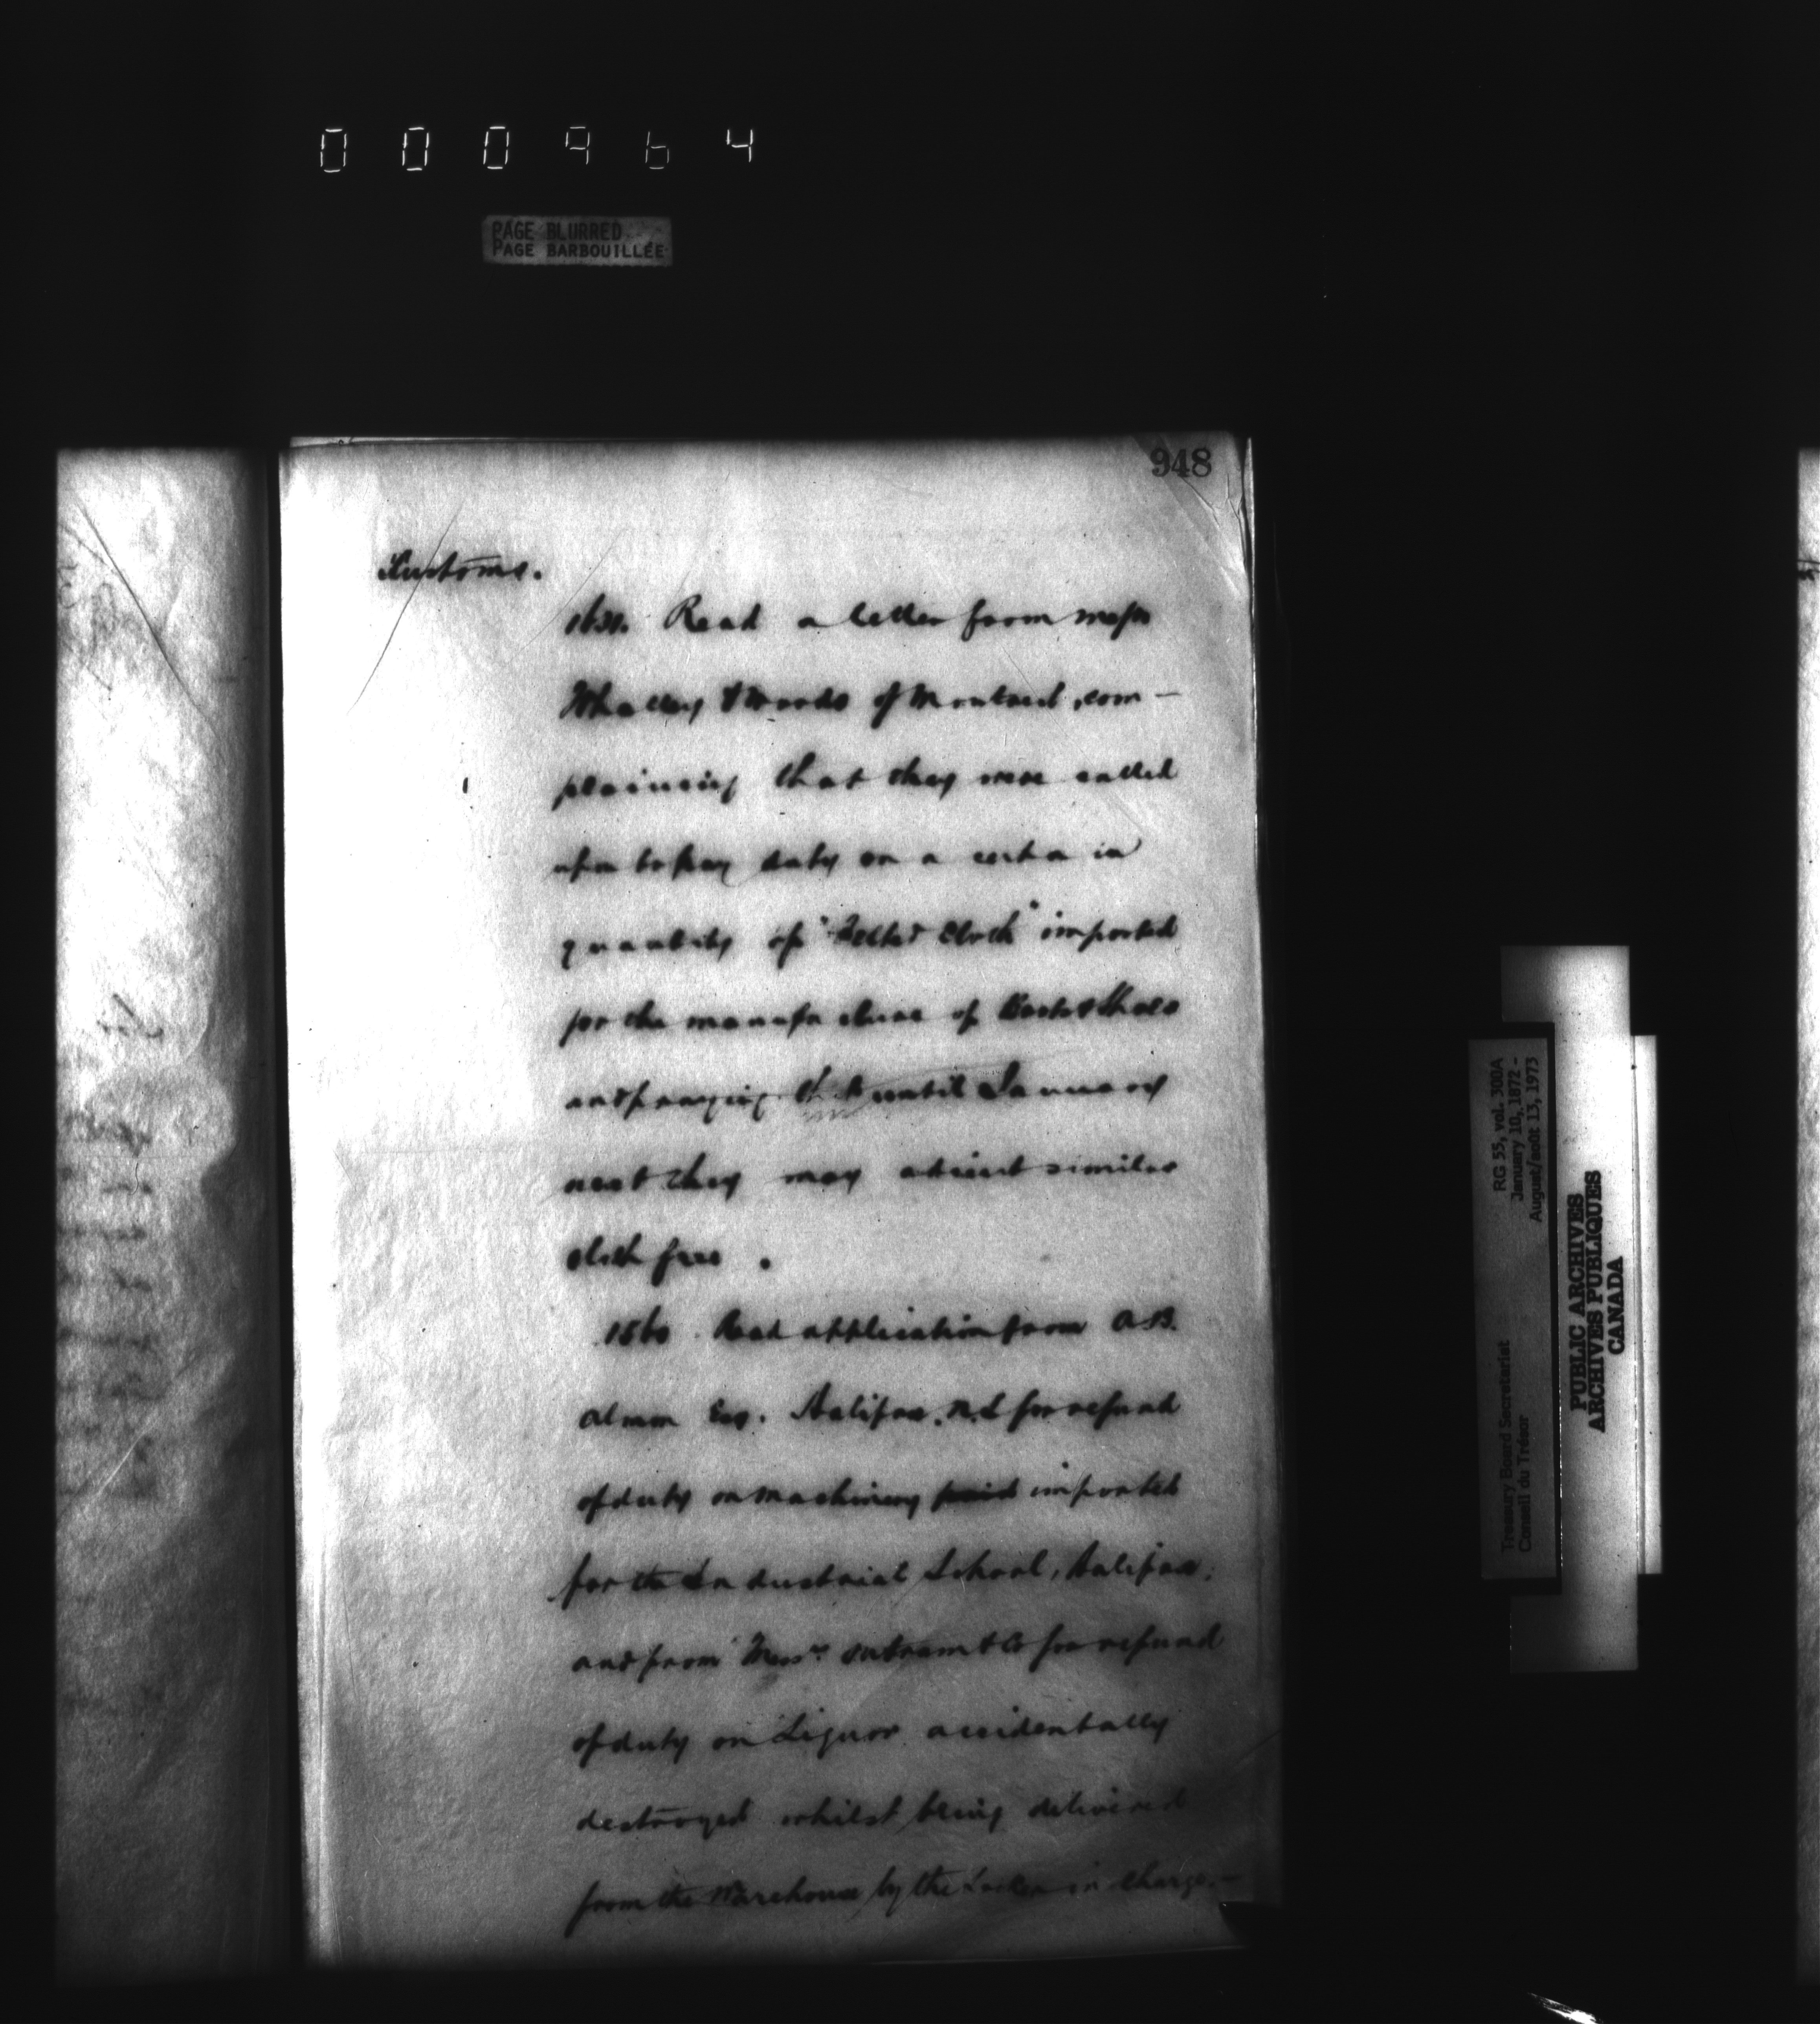 000964
PAGE BLURRED
PAGE BARBOUILLÉE
948
Customs.
1631. Read a letter from Messrs
Whalley & Woods of Montreal, com-
plaining that they were called
upon to pay duty on a certain
quantity of "Felted Cloth" imported
for the manufacture of Boots & Shoes
and praying that until January
next they may admit similar
cloth free.
1560 Read application from A.B.
Almon Esq. Halifax, N.S for refund
of duty on machinery imported
for the Industrial School, Halifax;
and from Messrs Outram & Co for refund
of duty on Liquor accidentally
destroyed whilst being delivered
from the Warehouse by the Locker in charge.-
RG 55, vol. 300A
January 10, 1872 -
August/août 13, 1973
Treasury Board Secretariat
Conseil du Trésor
PUBLIC ARCHIVES
ARCHIVES PUBLIQUES
CANADA